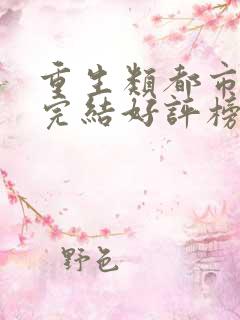 重生類都市
完結好評榜
野色